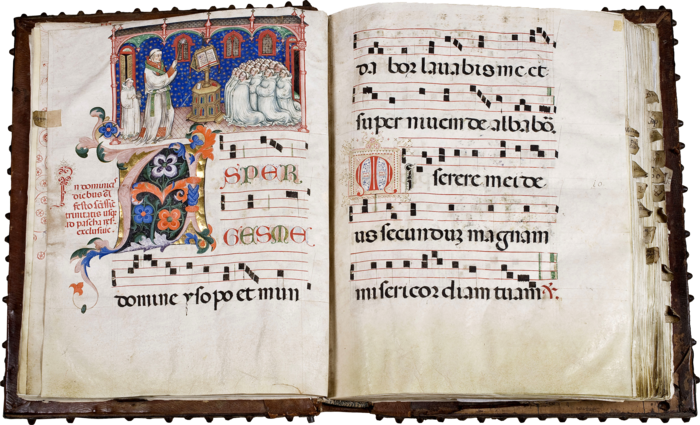 ASPER
GES ME
n dominicis
diebus a
festo scissie
trinitatis usqz
ad pascha ref.
exclusive.
domine ysopo et mun
da bor lavabis me et
super nivem de albabō.
Miserere mei de
us secunduz magnam
misericordiam tuam V.